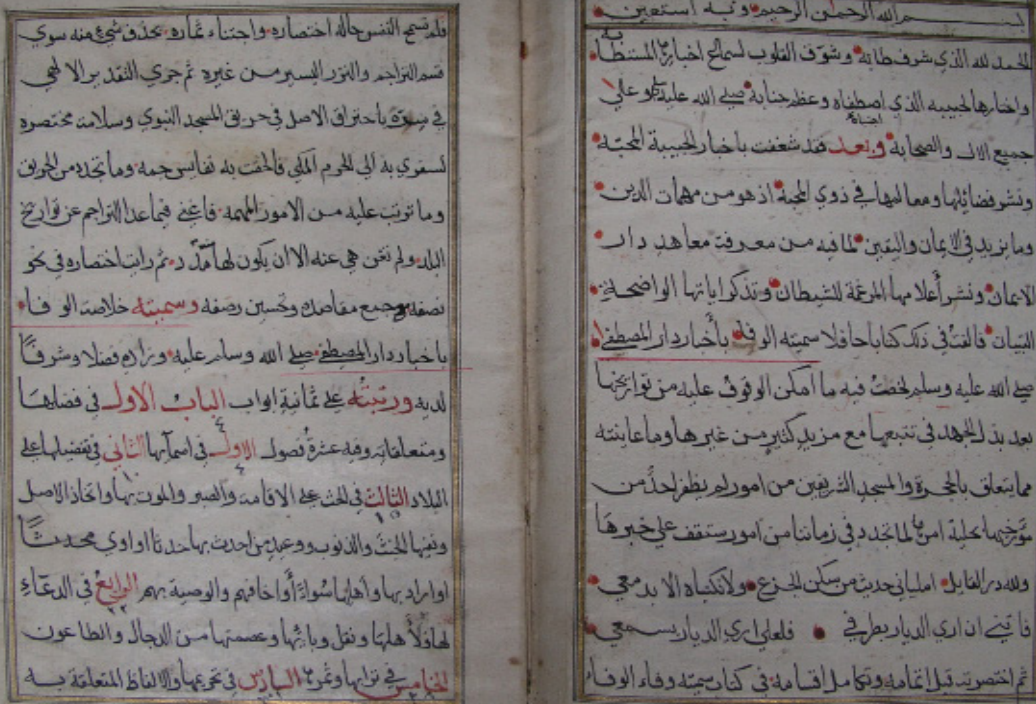 بسم الله الرحمن الرحيم وبه استعين
الحمد لله الذي شرف طابه وشوق القلوب لسماع اخبارها المستطابه
واختارها لحبيبه الذي اصطفاه وعظم جنابه صلى الله عليه وعلى
جميع الال والصحابة وبعد فقد شغفت باخبار الحبيبة المحبّه
ونشر فضائلها ومعالمها في ذوي المحبة اذ هو من مهمات الدين
وما يزيد في الايمان واليقين لما فيه من معرفت معاهد دار
الايمان ونشر أعلامها المرغمة للشيطان وتذكر اياتها الواضحة
التبيان فالفت في ذلك كتابا حافلا سميته الوفا بأخبار دار المصطفى
صلى الله عليه وسلم لخصتُ فيه ما امكن الوقوف عليه من تواريخها
بعد بذل الجهد في تتبعها مع مزيد كثير من غيرها وما عاينته
مما يتعلق بالحجرة والمسجد الشريفين من امور لم يظفر احدٌ من
مؤرخيها بحلية امرها لما تجدد في زماننا من امور ستقف على خبرها
ولله در القايل املياني حديث من سكن الجزع ولا تكتباه الا بدمعي
فاتني ان ارى الديار بطرفي فلعلي ارى الديار بسمعي
ثم اختصرته قبل اتمامه وتكامل اقسامه في كتاب سميته وفاء الوفاء
فلم تسمح النفس حالة اختصاره واجتناء ثماره بحذف شيء منه سوى
قسم التراجم والنزر اليسير من غيره ثم جرى التقدير الالهي
باحتراق الاصل في حريق المسجد النبوي وسلامة مختصره
لسفري به الى الحرم المكي فالحقت به نفايس جمه وما تجدد من الحريق
وما ترتب عليه من الامور المهمه فاغنى فيما عدا التراجم عن تواريخ
البلد ولم تغن هي عنه الا ان يكون لها مدد ثم رايت اختصاره في نحو
نصفه مع جمع مقاصده وتحسين رصفه وسميته خلاصة الوفاء
باخبار دار المصطفى صلى الله وسلم عليه وزاده فضلا وشرفًا
لديه ورتبتُه على ثمانية ابواب الباب الاول في فضلها
ومتعلقاته وفيه عشرة فصول الاول في اسمآئها الثاني في تفضيلها على
البلاد الثالث في الحث على الاقامة والصبر والموت بها واتخاذ الاصل
ونفيها الخبث والذنوب ووعيد من احدث بها حدثا او اوى محدثًا
او اراد بها واهلها سُوءًا أو اخافهم والوصية بهم الرابع في الدعاء
لها ولأهلها ونقل وبائها وعصمتها من الدجال والطاعون
الخامس في ترابها وثمرها السادس في تحريمها والالفاظ المتعلقة به